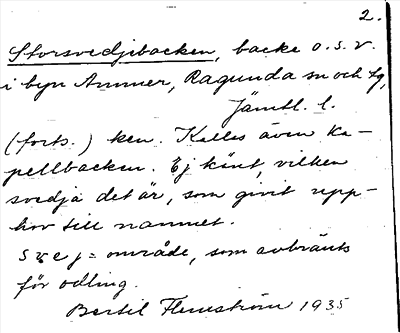 2.
Storsvedjebacken, backe o.s.v.
i byn Ammer, Ragunda sn och tg,
Jämtl. l.
(forts.) ken. Kallas även Ka-
pellbacken. Ej känt, vilken
svedja det är, som givit upp-
hov till namnet.
svej = område, som avbränts
för odling.
Bertil Flemström 1935